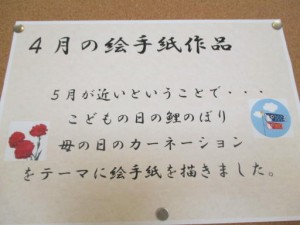 ４月の絵手紙作品
５月が近いということで・・・
こどもの日の鯉のぼり
母の日のカーネーション
をテーマに絵手紙を描きました。